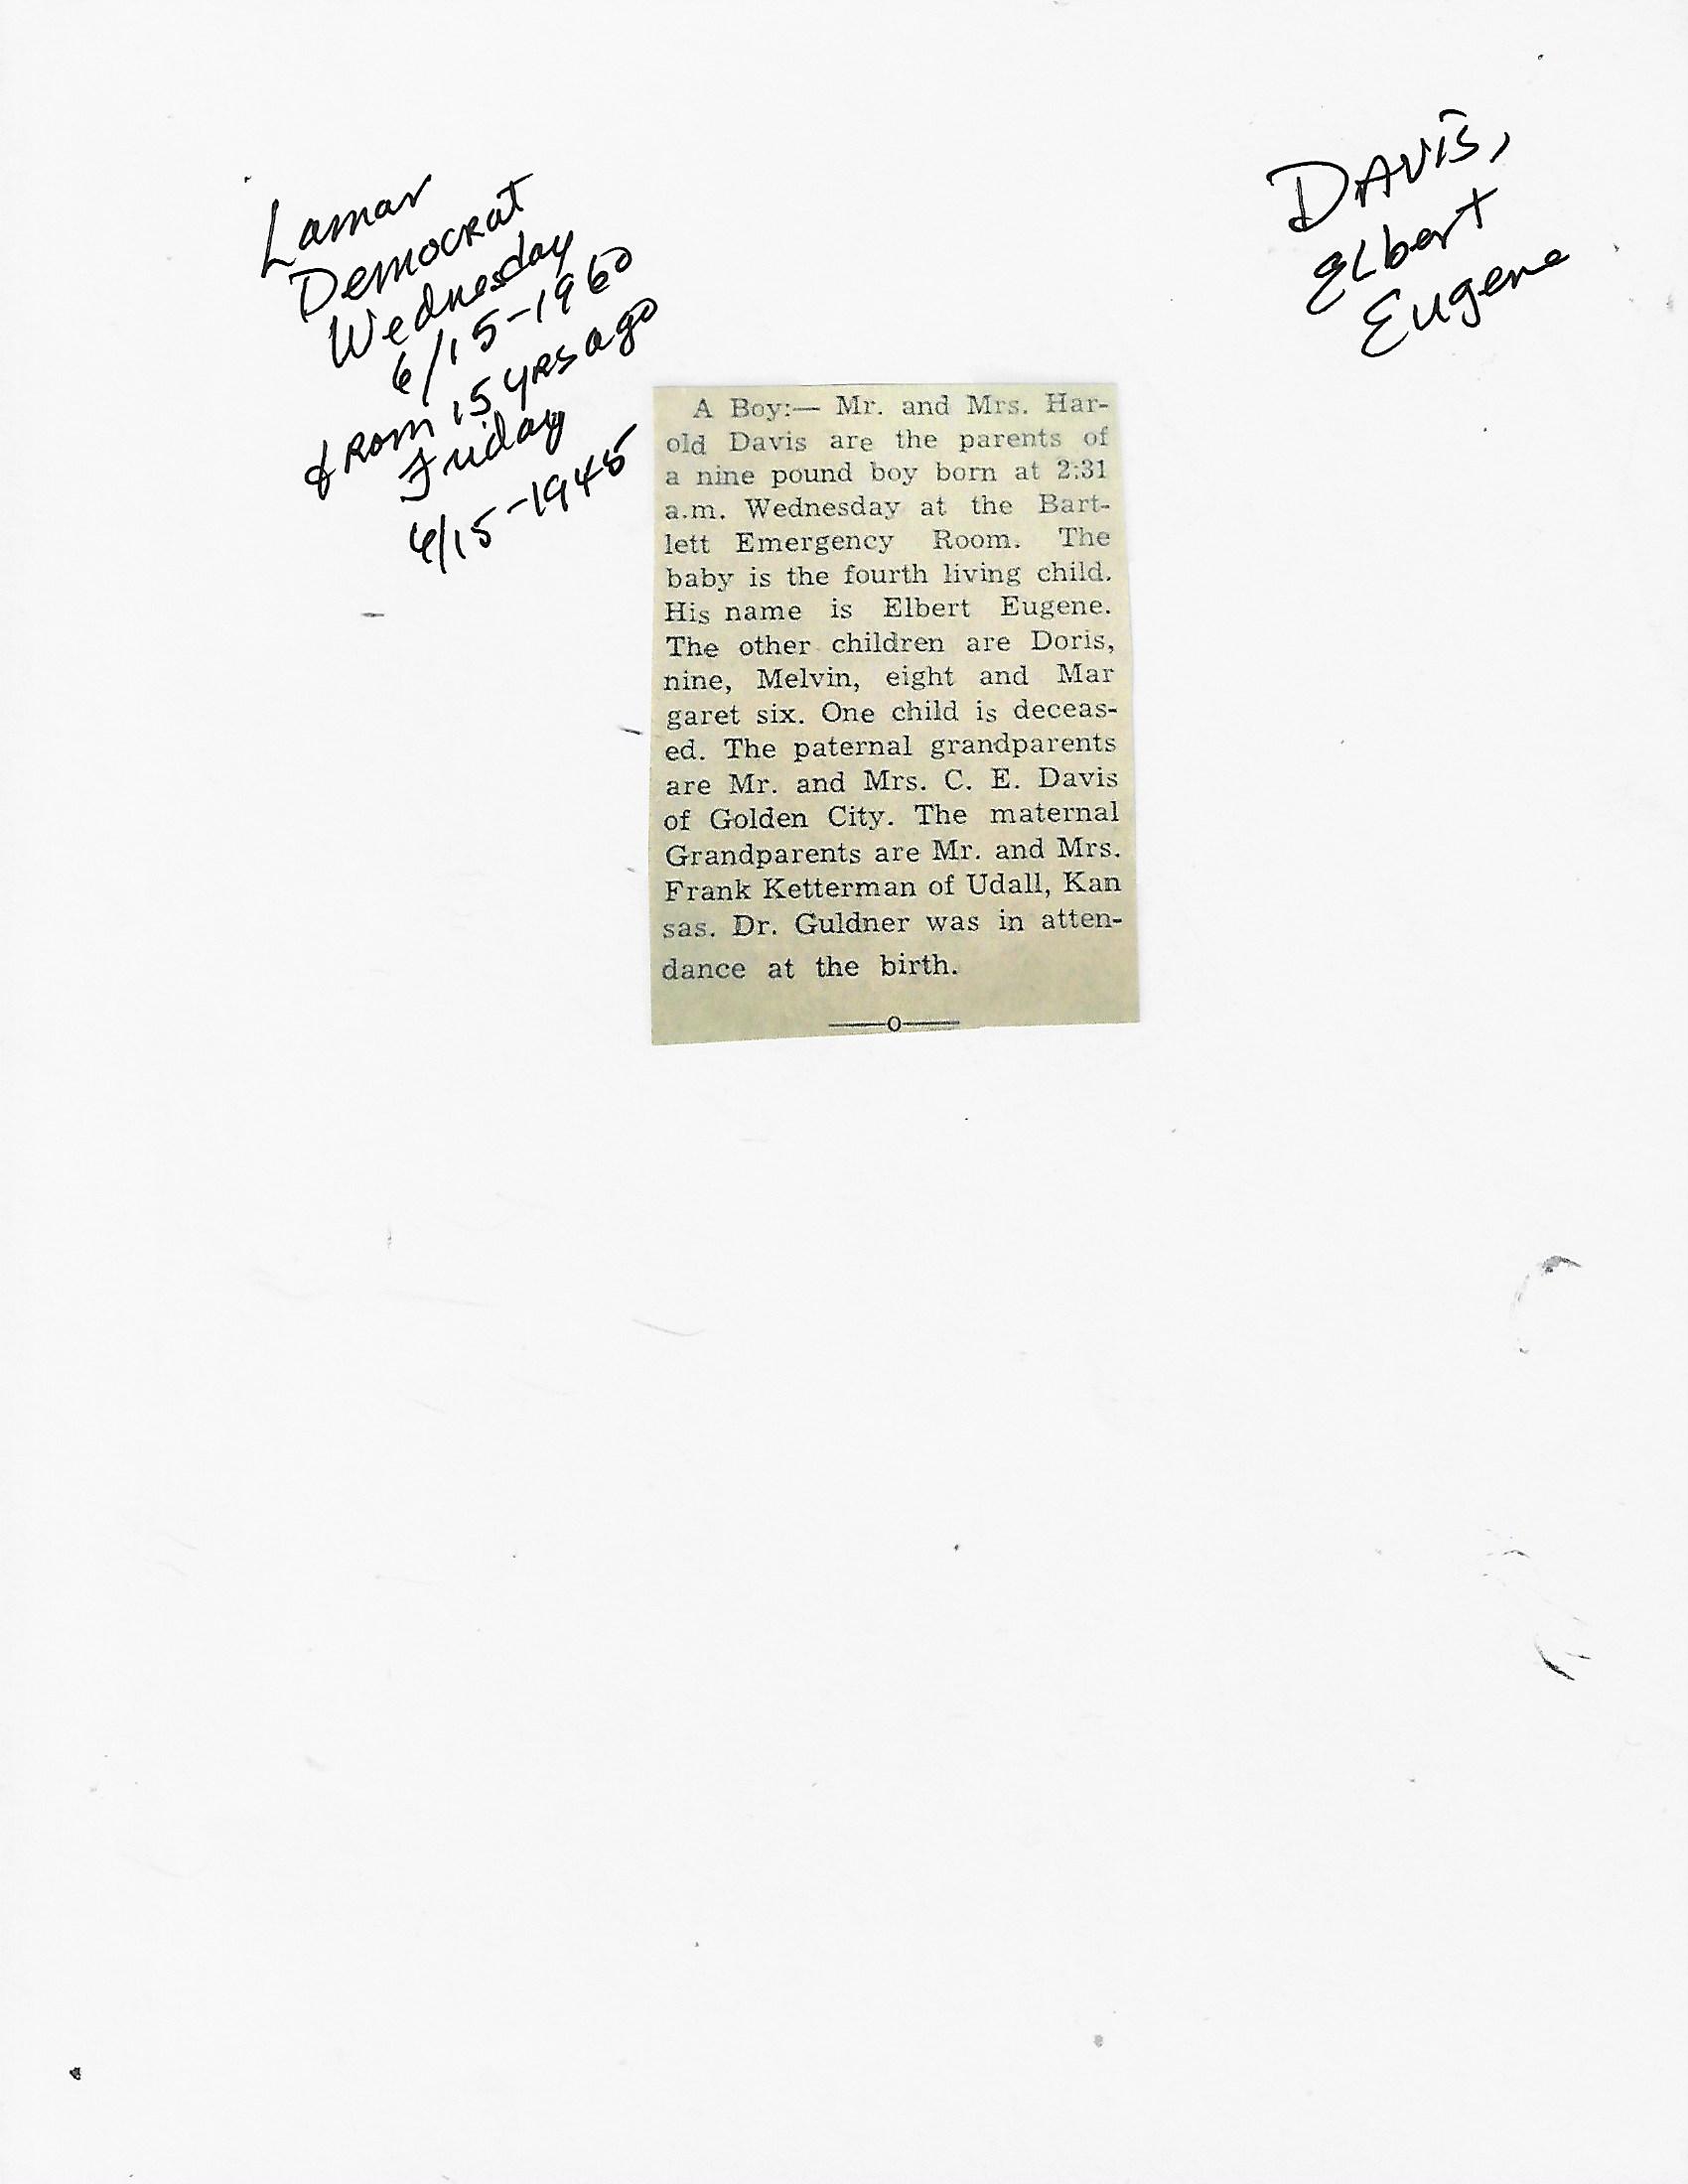 Lamar
Democrat
Wednesday
6/15-1960
from 15 yrs ago
Friday
6/15-1945
DAVIS,
Elbert
Eugene
A Boy:— Mr. and Mrs. Har-
old Davis are the parents of
a nine pound boy born at 2:31
a.m. Wednesday at the Bart-
lett Emergency Room. The
baby is the fourth living child.
His name is Elbert Eugene.
The other children are Doris,
nine, Melvin, eight and Mar
garet six. One child is deceas-
ed. The paternal grandparents
are Mr. and Mrs. C. E. Davis
of Golden City. The maternal
Grandparents are Mr. and Mrs.
Frank Ketterman of Udall, Kan
sas. Dr. Guldner was in atten-
dance at the birth.
——o——